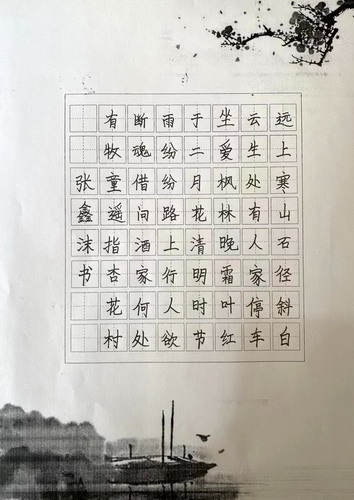 远上寒山石径斜白
云生处有人家停车
坐爱枫林晚霜叶红
于二月花清明时节
雨纷纷路上行人欲
断魂借问酒家何处
有牧童遥指杏花村
张鑫沫书